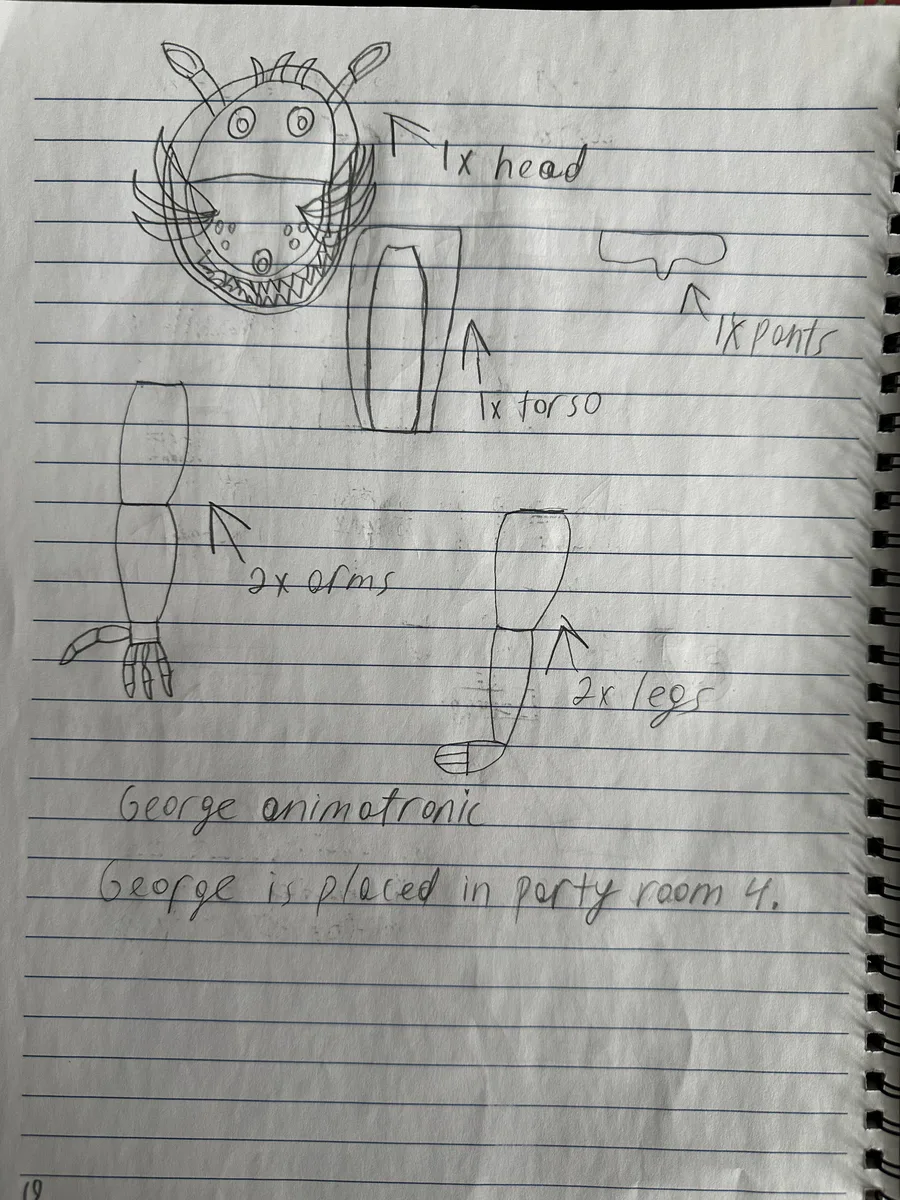 1x head
1x pants
1x torso
2x arms
2x legs
George animatronic
George is placed in party room 4.
19